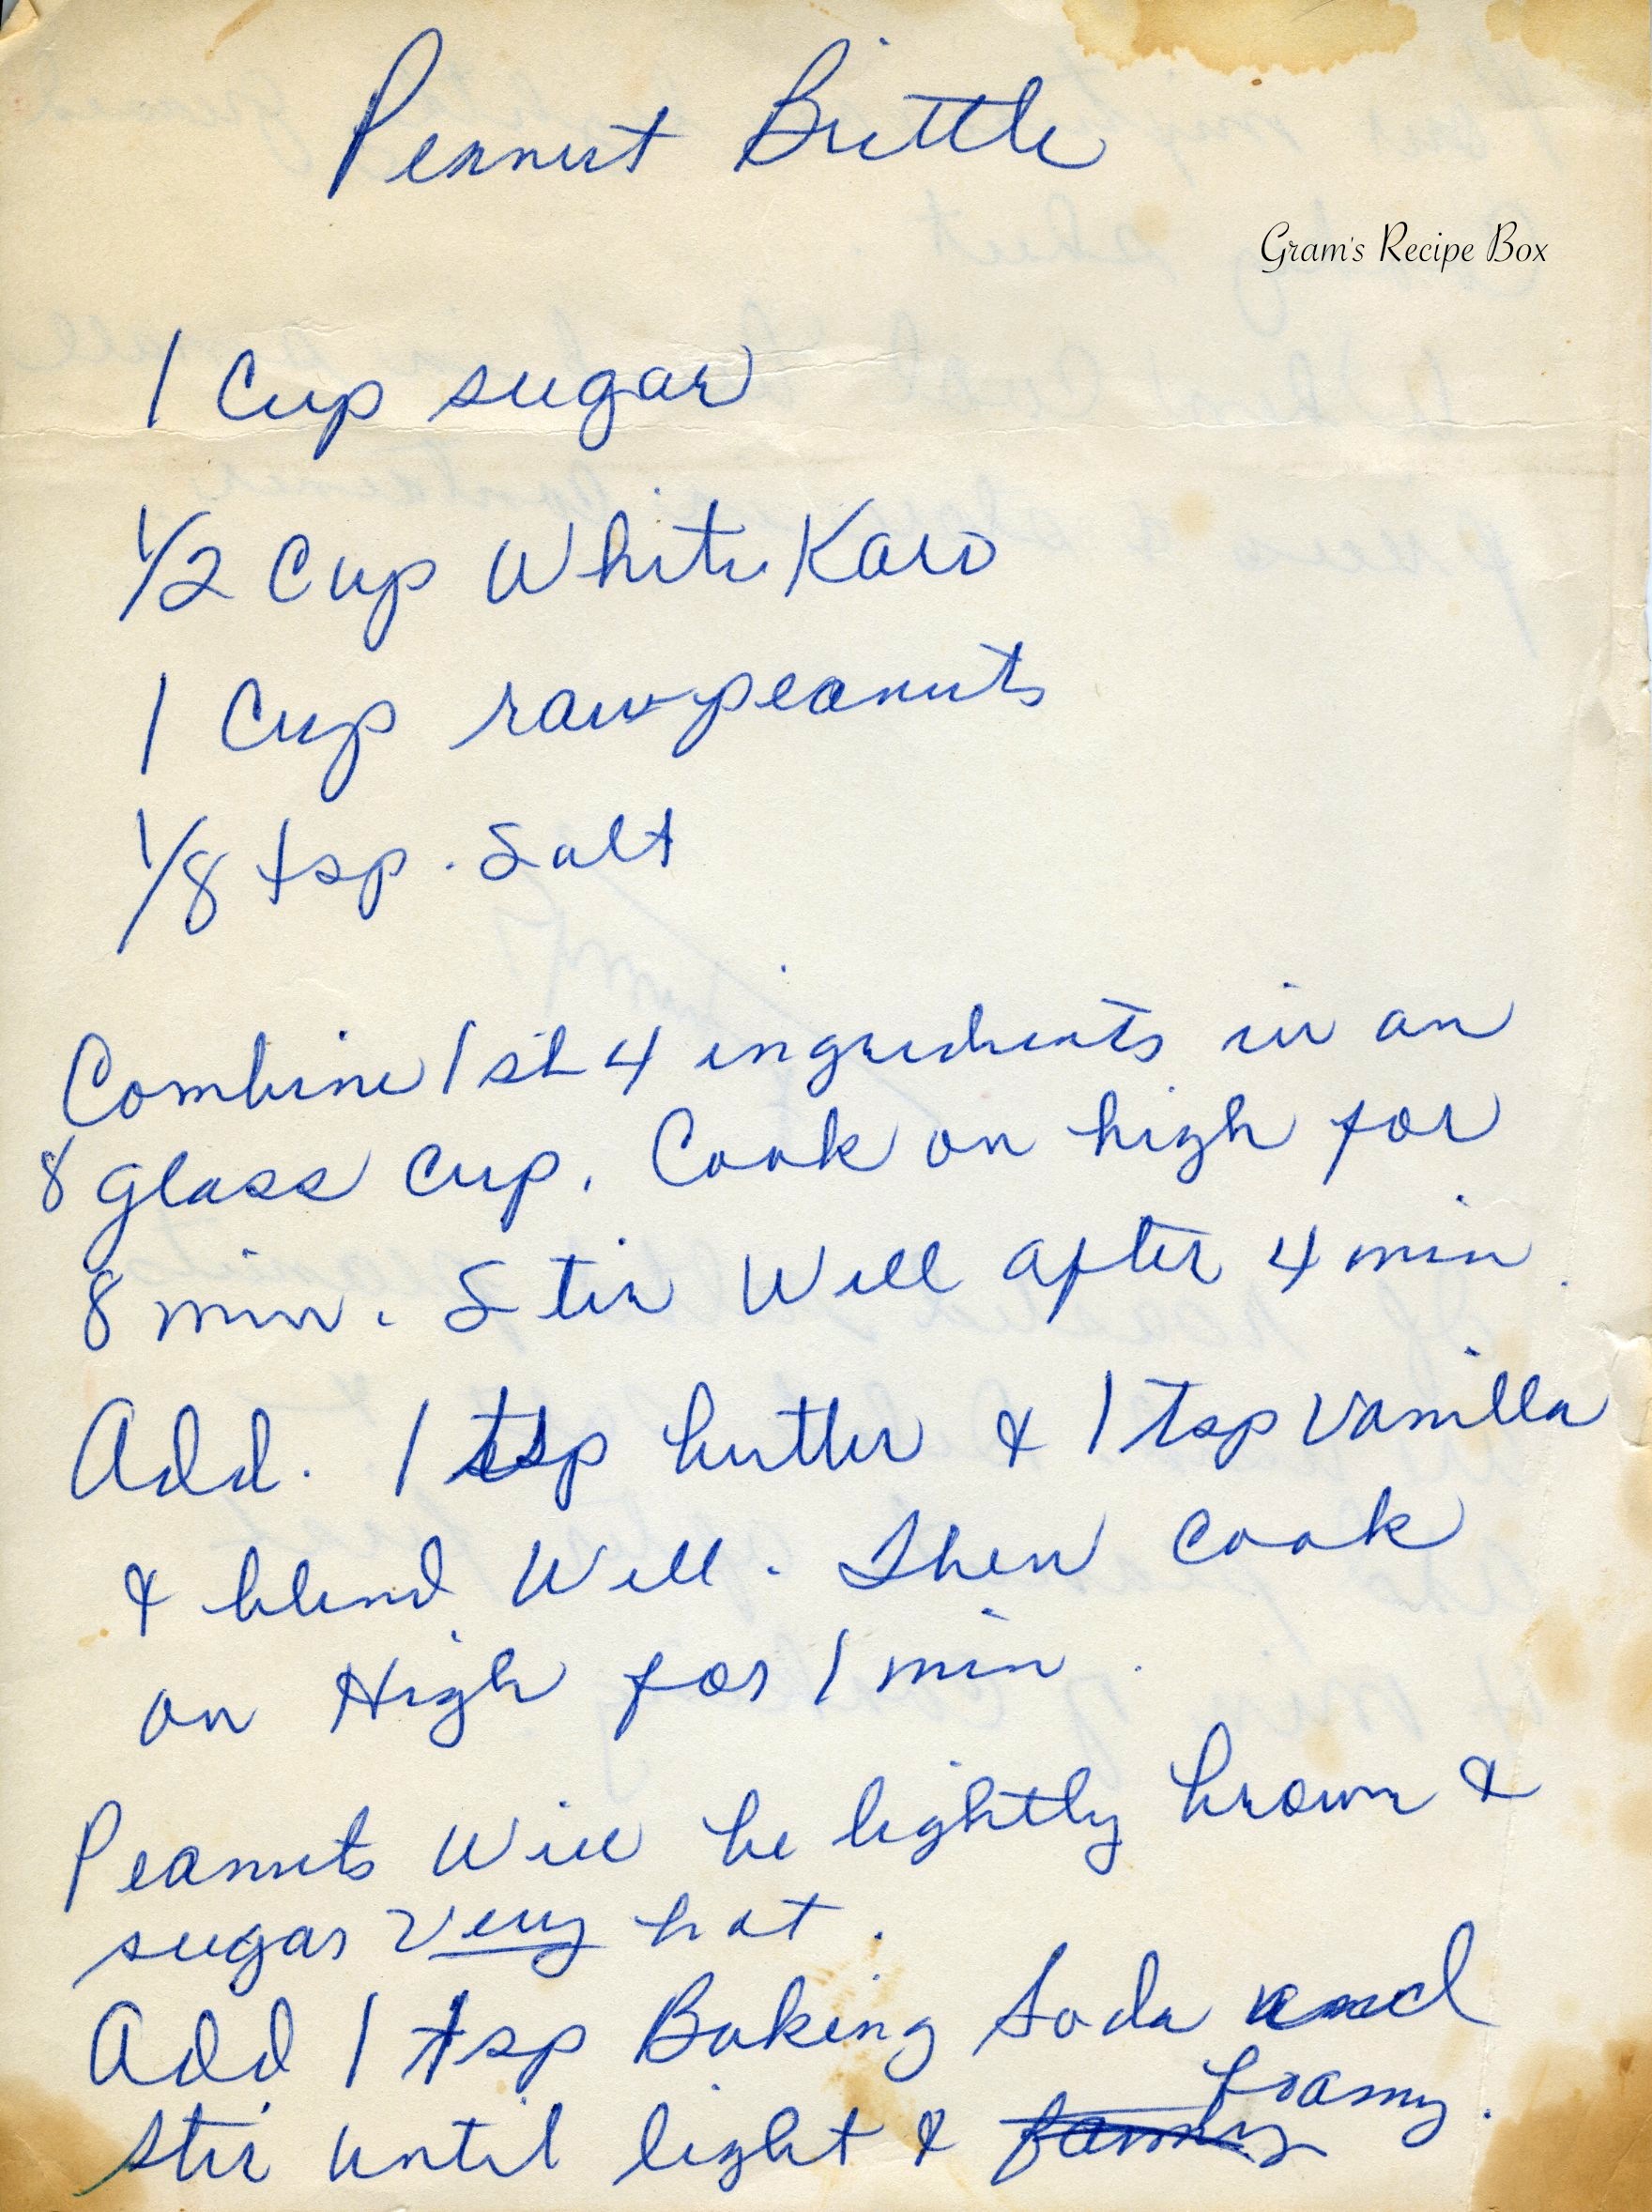 Peanut Brittle
Gram's Recipe Box
1 Cup sugar
1/2 Cup White Karo
1 Cup raw peanuts
1/8 tsp. Salt
Combine 1st 4 ingredients in an
8 glass cup. Cook on high for
8 min. Stir Well after 4 min.
Add. 1 tsp butter & 1 tsp vanilla
& blend Well. Then cook
on High for 1 min.
Peanuts Will be lightly brown &
sugar very hot.
Add 1 tsp Baking Soda and
stir until light & foamy.